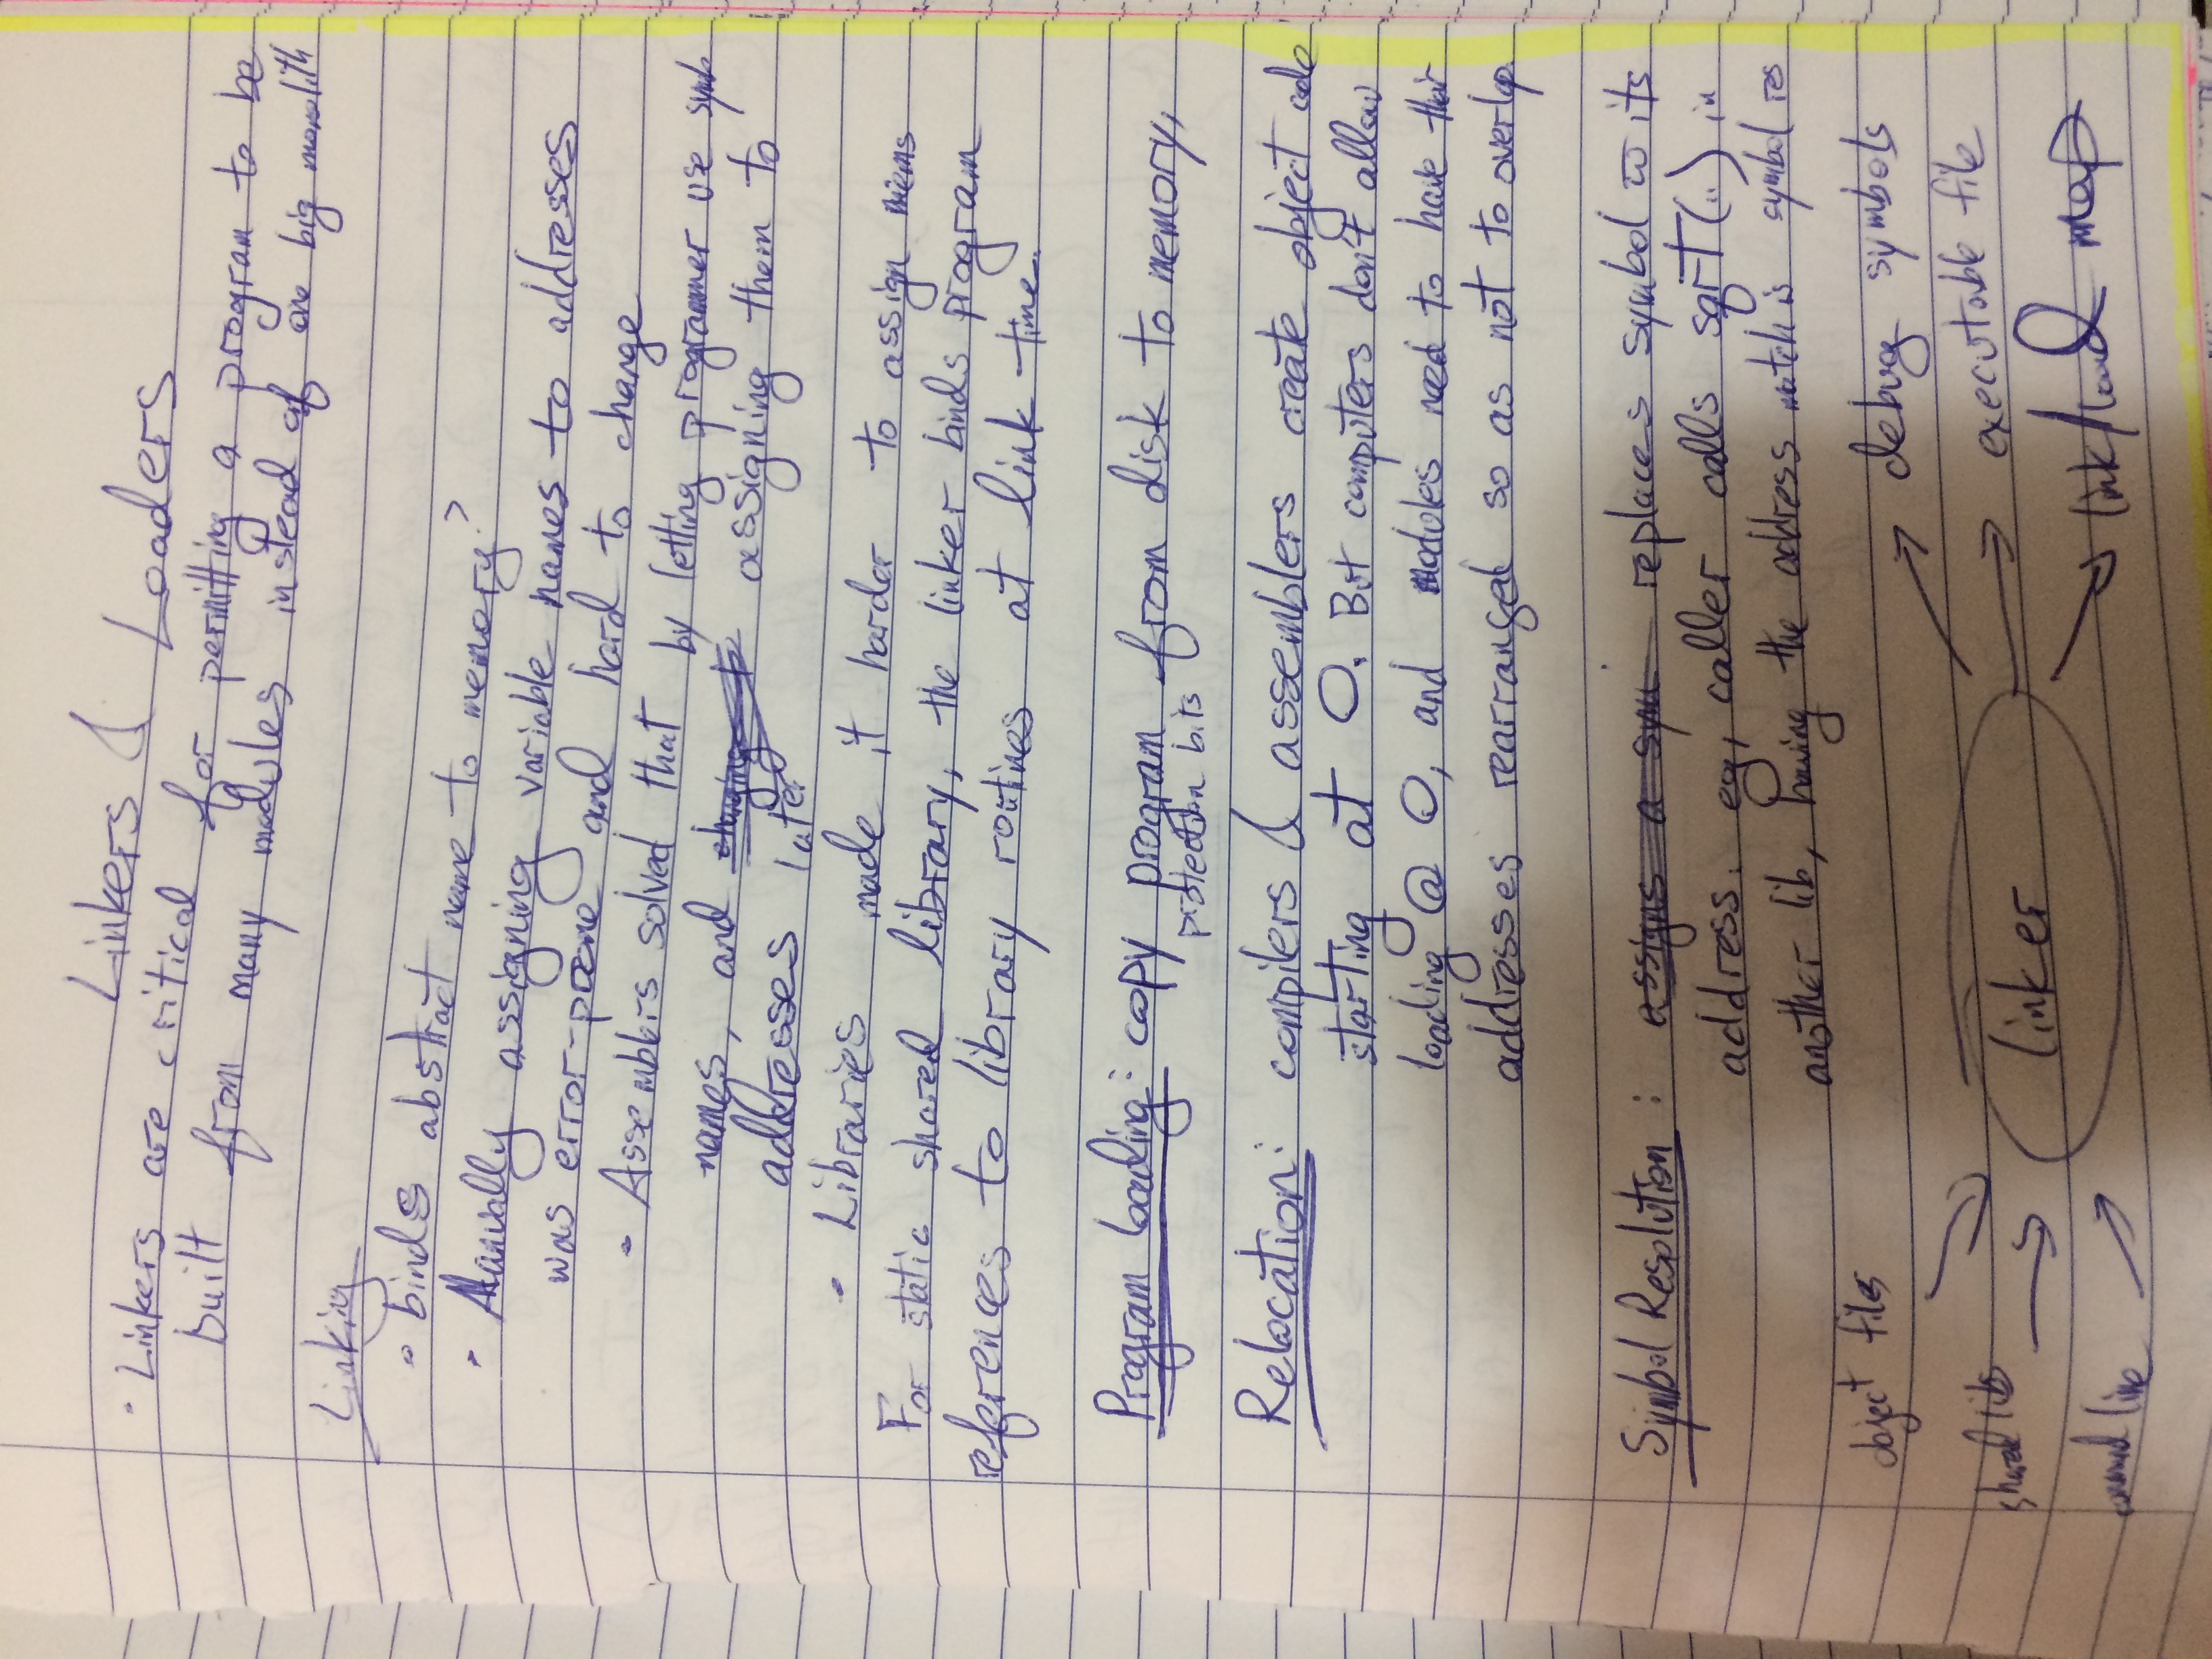 Linkers & Loaders
• Linkers are critical for permitting a program to be
built from many modules instead of one big monolith
Linking
• binds abstract name to memory?
• Manually assigning variable names to addresses
was error-prone and hard to change
• Assemblers solved that by letting programmer use symb
names, and changing assigning them to
addresses later
• Libraries made it harder to assign mems
For static shared library, the linker binds program
references to library routines at link time.
Program loading: copy program from disk to memory,
protection bits
Relocation: compilers & assemblers create object code
starting at 0. But computers don't allow
loading @ 0, and modules need to have their
addresses rearranged so as not to overlap.
Symbol Resolution: assigns a sym replaces symbol w its
address. eg, caller calls sqrt(..) in
another lib, having the address match is symbol res
object files
debug symbols
shared libs
linker
executable file
command line
link/load map